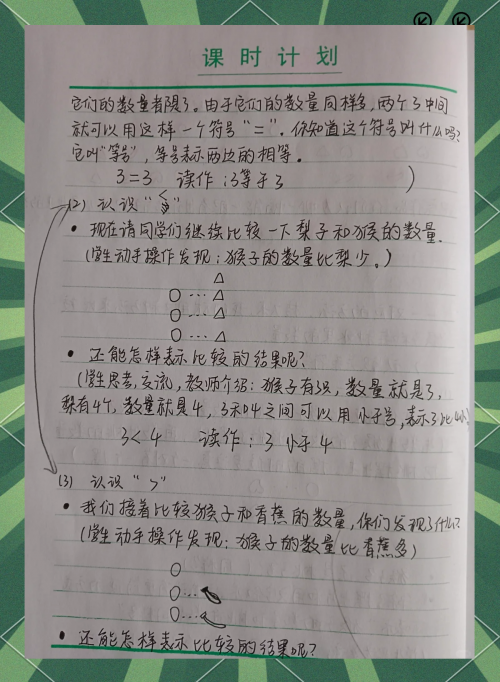 课时计划
它们的数量都是3。由于它们的数量同样多,两个3中间
就可以用这样一个符号“=”。你知道这个符号叫什么吗?
它叫“等号”,等号表示两边的相等。
3=3 读作:3等于3 )
(2) 认识“<”
• 现在请同学们继续比较一下梨子和猴的数量.
(学生动手操作发现:猴子的数量比梨少。)
• 还能怎样表示比较的结果呢?
(学生思考,交流,教师介绍:猴子有3只,数量就是3,
梨有4个,数量就是4,3和4之间可以用小于号,表示3比4小)
3<4 读作:3小于4
(3) 认识“>”
• 我们接着比较猴子和香蕉的数量,你们发现了什么?
(学生动手操作发现:猴子的数量比香蕉多)
• 还能怎样表示比较的结果呢?